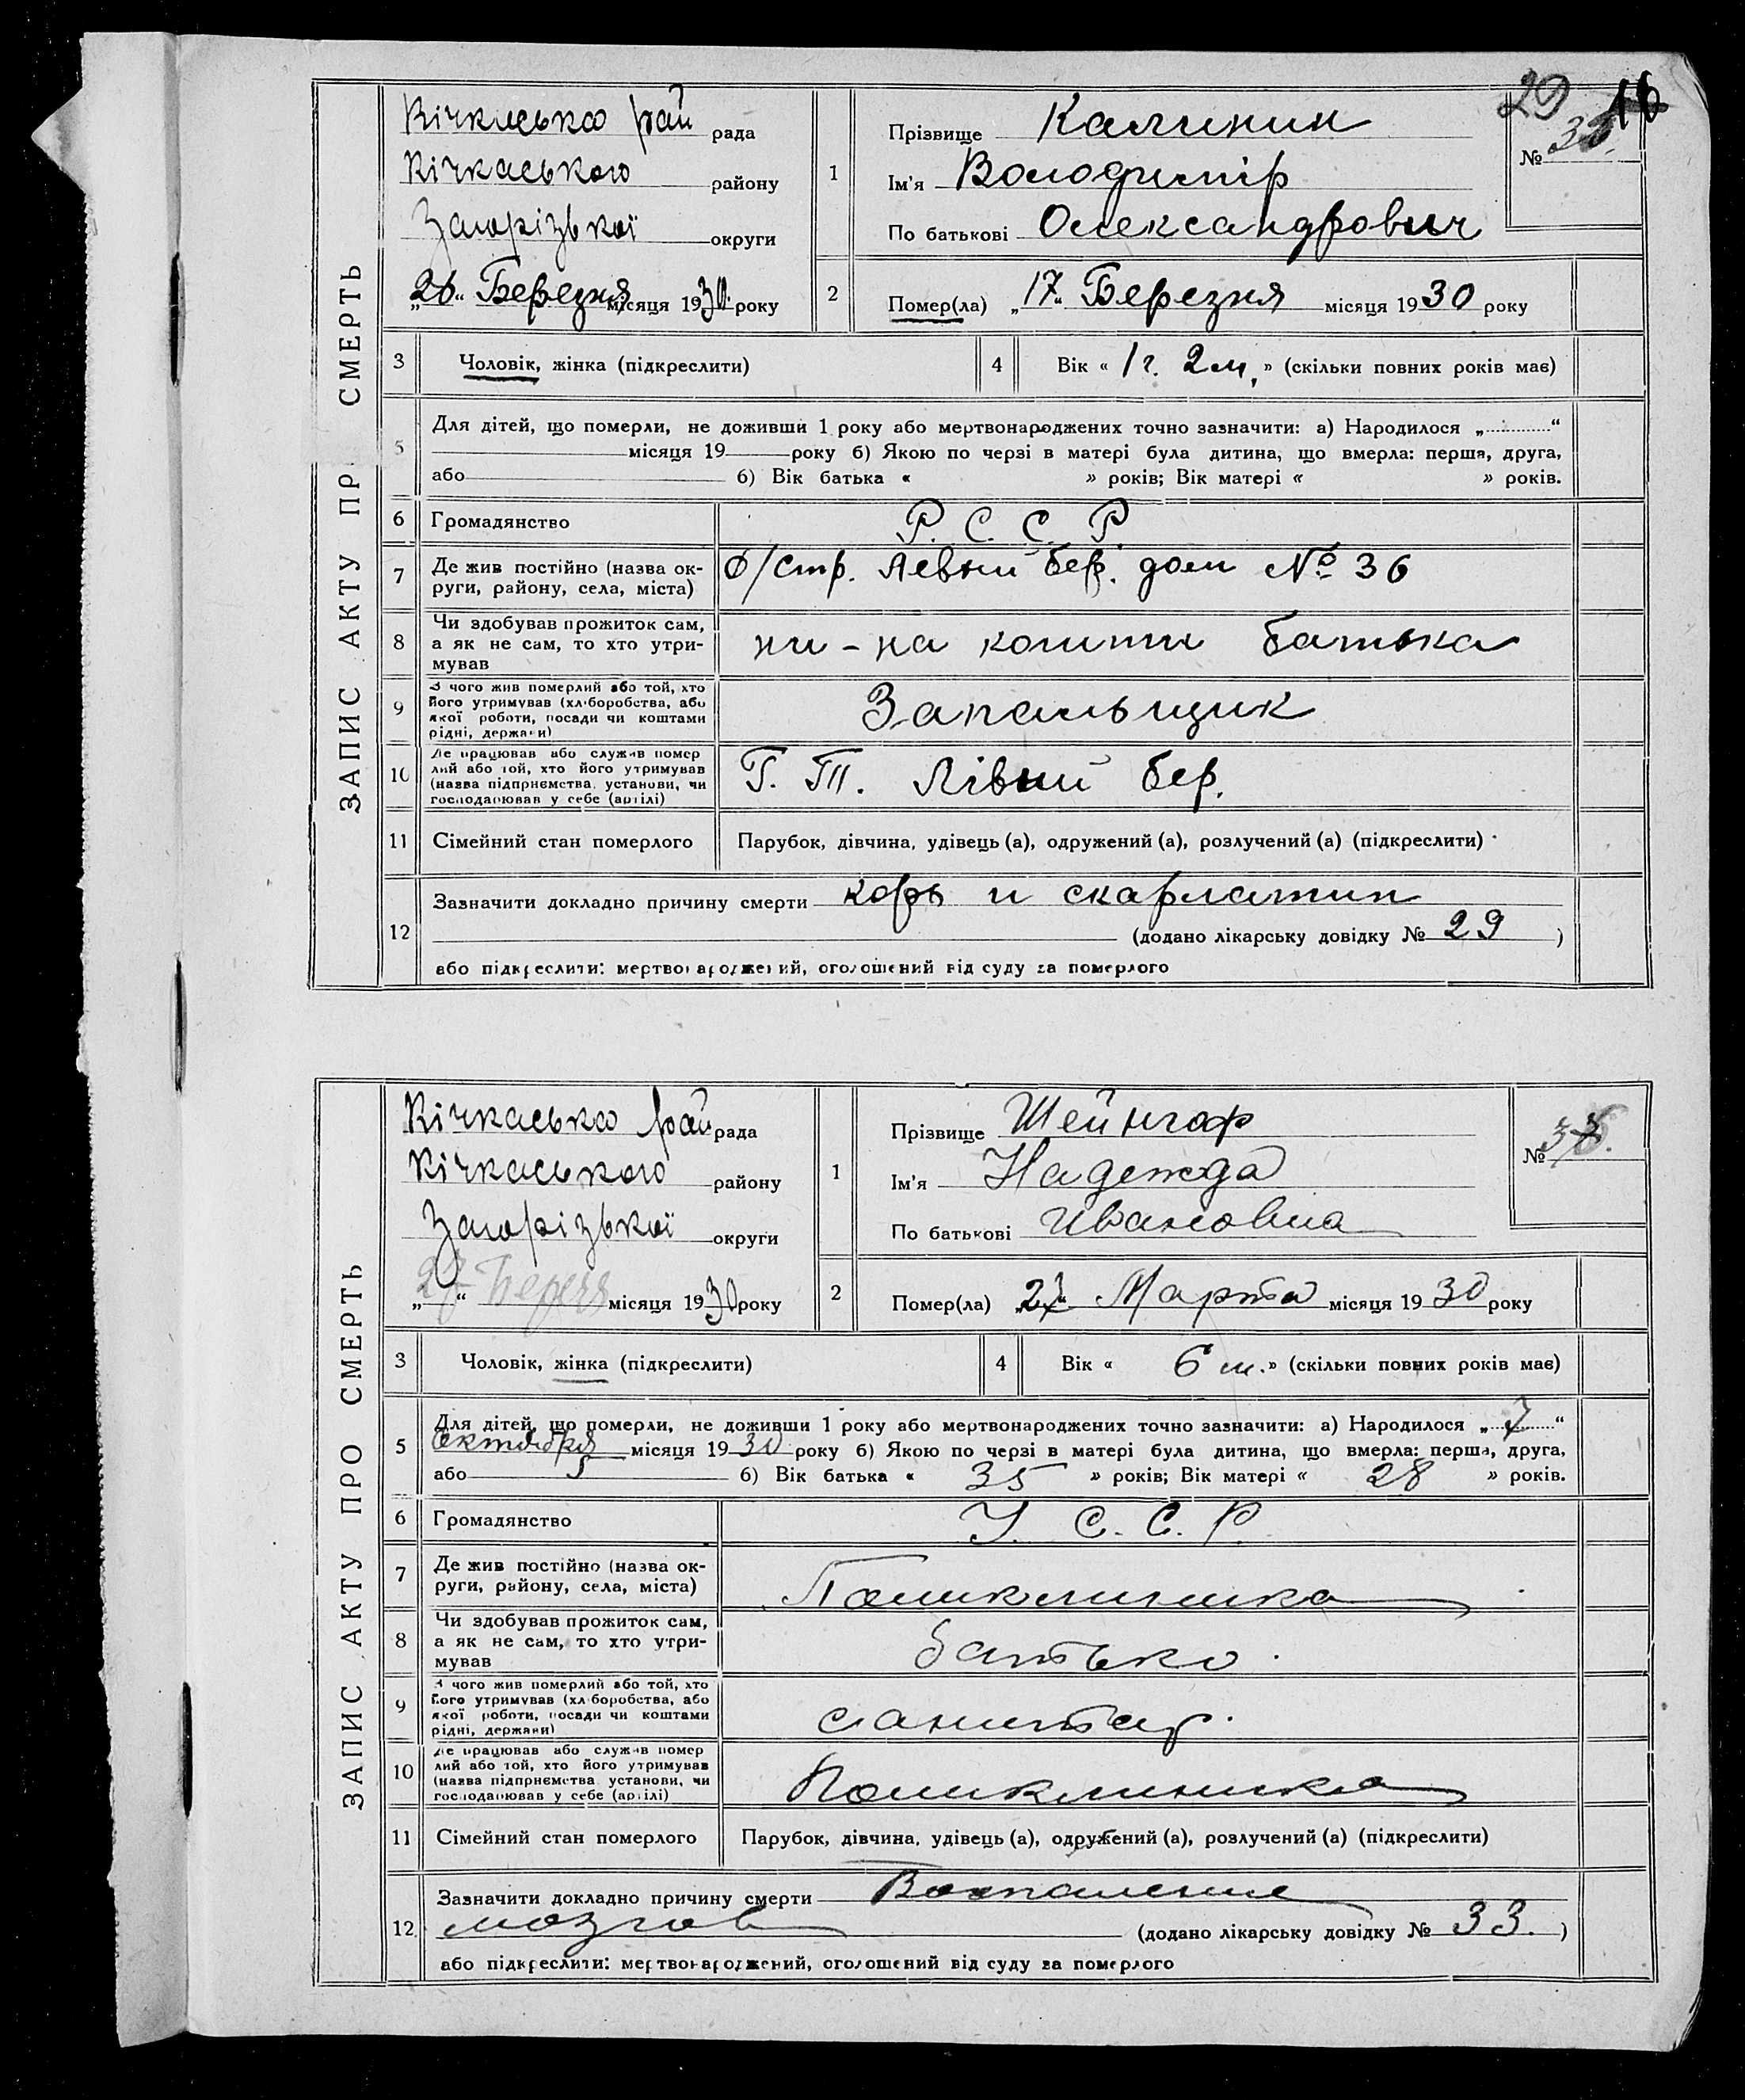 29 16
ЗАПИС АКТУ ПР СМЕРТЬ
Кічкаська рай рада
Кічкаського району
Запорізької округи
„26“ Березня місяця 1930 року
1
Прізвище Калинин
Ім'я Володимір
По батькові Олександрович
№
2
Помер(ла) „17“ Березня місяця 1930 року
3
Чоловік, жінка (підкреслити)
4
Вік « 1 г. 2 м. » (скільки повних років має)
5
Для дітей, що померли, не доживши 1 року або мертвонароджених точно зазначити: а) Народилося „ “
місяця 19 року б) Якою по черзі в матері була дитина, що вмерла: перша, друга,
або б) Вік батька « » років; Вік матері « » років.
6
Громадянство Р. С. С. Р.
7
Де жив постійно (назва ок-
руги, району, села, міста)
/стр. Левий бер. дом № 36
8
Чи здобував прожиток сам,
а як не сам, то хто утри-
мував
ни - на кошти батька
9
З чого жив померлий або той, хто
його утримував (хліборобства, або
якої роботи, посади чи коштами
рідні, держави)
Запальщик
10
Де працював або служив помер
лий або той, хто його утримував
(назва підприємства, установи, чи
господарював у себе (артілі)
Г. Т. Лівий бер.
11
Сімейний стан померлого
Парубок, дівчина, удівець (а), одружений (а), розлучений (а) (підкреслити)
12
Зазначити докладно причину смерти корь и скарлатин
(додано лікарську довідку № 29 )
або підкреслити: мертвонароджений, оголошений від суду за померлого
ЗАПИС АКТУ ПРО СМЕРТЬ
Кічкаська рай рада
Кічкаського району
Запорізької округи
„27“ Березя місяця 1930 року
1
Прізвище
Ім'я Надежда
По батькові Ивановна
№
2
Помер(ла) „27“ Марта місяця 1930 року
3
Чоловік, жінка (підкреслити)
4
Вік « 6 м. » (скільки повних років має)
5
Для дітей, що померли, не доживши 1 року або мертвонароджених точно зазначити: а) Народилося „7“
Октября місяця 1930 року б) Якою по черзі в матері була дитина, що вмерла: перша, друга,
або 5 б) Вік батька « 35 » років; Вік матері « 28 » років.
6
Громадянство У. С. С. Р.
7
Де жив постійно (назва ок-
руги, району, села, міста)
Поликлиника
8
Чи здобував прожиток сам,
а як не сам, то хто утри-
мував
батько.
9
З чого жив померлий або той, хто
його утримував (хліборобства, або
якої роботи, посади чи коштами
рідні, держави)
санитар.
10
Де працював або служив помер
лий або той, хто його утримував
(назва підприємства, установи, чи
господарював у себе (артілі)
Поликлиника
11
Сімейний стан померлого
Парубок, дівчина, удівець (а), одружений (а), розлучений (а) (підкреслити)
12
Зазначити докладно причину смерти Воспаление
мозгов (додано лікарську довідку № 33. )
або підкреслити: мертвонароджений, оголошений від суду за померлого